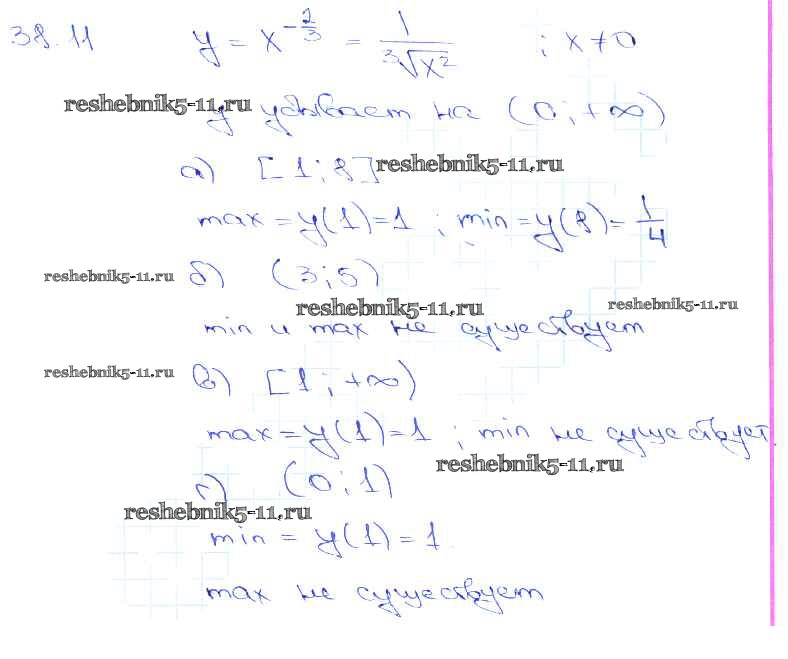 38.11 y = x^{-2/3} = 1/∛x² ; x ≠ 0
reshebnik5-11.ru
y убывает на (0; +∞)
а) [1; 8] reshebnik5-11.ru
max = y(1) = 1 ; min = y(8) = 1/4
reshebnik5-11.ru б) (3; 5)
reshebnik5-11.ru reshebnik5-11.ru
min и max не существует
reshebnik5-11.ru в) [1; +∞)
max = y(1) = 1 ; min не существует.
reshebnik5-11.ru
г) (0; 1)
reshebnik5-11.ru
min = y(1) = 1.
max не существует